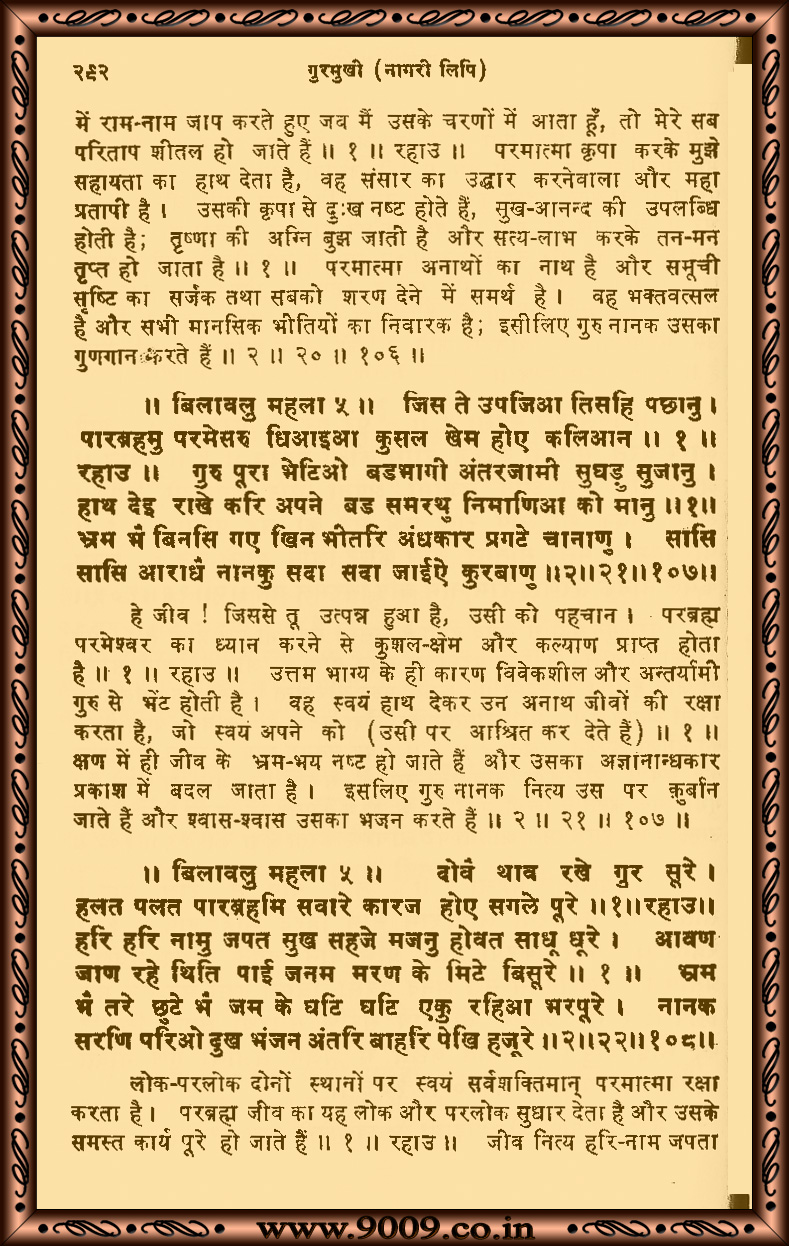 २९२ गुरमुखी (नागरी लिपि)
में राम-नाम जाप करते हुए जब मैं उसके चरणों में आता हूँ, तो मेरे सब
परिताप शीतल हो जाते हैं ॥ १ ॥ रहाउ ॥ परमात्मा कृपा करके मुझे
सहायता का हाथ देता है, वह संसार का उद्धार करनेवाला और महा
प्रतापी है । उसकी कृपा से दुःख नष्ट होते हैं, सुख-आनन्द की उपलब्धि
होती है; तृष्णा की अग्नि बुझ जाती है और सत्य-लाभ करके तन-मन
तृप्त हो जाता है ॥ १ ॥ परमात्मा अनाथों का नाथ है और समूची
सृष्टि का सर्जक तथा सबको शरण देने में समर्थ है । वह भक्तवत्सल
है और सभी मानसिक भीतियों का निवारक है; इसीलिए गुरु नानक उसका
गुणगान करते हैं ॥ २ ॥ २० ॥ १०६ ॥
॥ बिलावलु महला ५ ॥ जिस ते उपजिआ तिसहि पछानु ।
पारब्रहमु परमेसरु धिआइआ कुसल खेम होए कलिआन ॥ १ ॥
रहाउ ॥ गुरु पूरा भेटिओ बडभागी अंतरजामी सुघड़ु सुजानु ।
हाथ देइ राखे करि अपने बड समरथु निमाणिआ को मानु ॥१॥
भ्रम भै बिनसि गए खिन भीतरि अंधकार प्रगटे चानाणु । सासि
सासि आराधै नानकु सदा सदा जाईऐ कुरबाणु ॥२॥२१॥१०७॥
हे जीव ! जिससे तू उत्पन्न हुआ है, उसी को पहचान । परब्रह्म
परमेश्वर का ध्यान करने से कुशल-क्षेम और कल्याण प्राप्त होता
है ॥ १ ॥ रहाउ ॥ उत्तम भाग्य के ही कारण विवेकशील और अन्तर्यामी
गुरु से भेंट होती है । वह स्वयं हाथ देकर उन अनाथ जीवों की रक्षा
करता है, जो स्वयं अपने को (उसी पर आश्रित कर देते हैं) ॥ १ ॥
क्षण में ही जीव के भ्रम-भय नष्ट हो जाते हैं और उसका अज्ञानान्धकार
प्रकाश में बदल जाता है । इसलिए गुरु नानक नित्य उस पर क़ुर्बान
जाते हैं और श्वास-श्वास उसका भजन करते हैं ॥ २ ॥ २१ ॥ १०७ ॥
॥ बिलावलु महला ५ ॥ दोवै थाव रखे गुर सूरे ।
हलत पलत पारब्रहमि सवारे कारज होए सगले पूरे ॥१॥रहाउ॥
हरि हरि नामु जपत सुख सहजे मजनु होवत साधू धूरे । आवण
जाण रहे थिति पाई जनम मरण के मिटे बिसूरे ॥ १ ॥ भ्रम
भै तरे छुटे भै जम के घटि घटि एकु रहिआ भरपूरे । नानक
सरणि परिओ दुख भंजन अंतरि बाहरि पेखि हजूरे ॥२॥२२॥१०८॥
लोक-परलोक दोनों स्थानों पर स्वयं सर्वशक्तिमान् परमात्मा रक्षा
करता है । परब्रह्म जीव का यह लोक और परलोक सुधार देता है और उसके
समस्त कार्य पूरे हो जाते हैं ॥ १ ॥ रहाउ ॥ जीव नित्य हरि-नाम जपता
www.9009.co.in